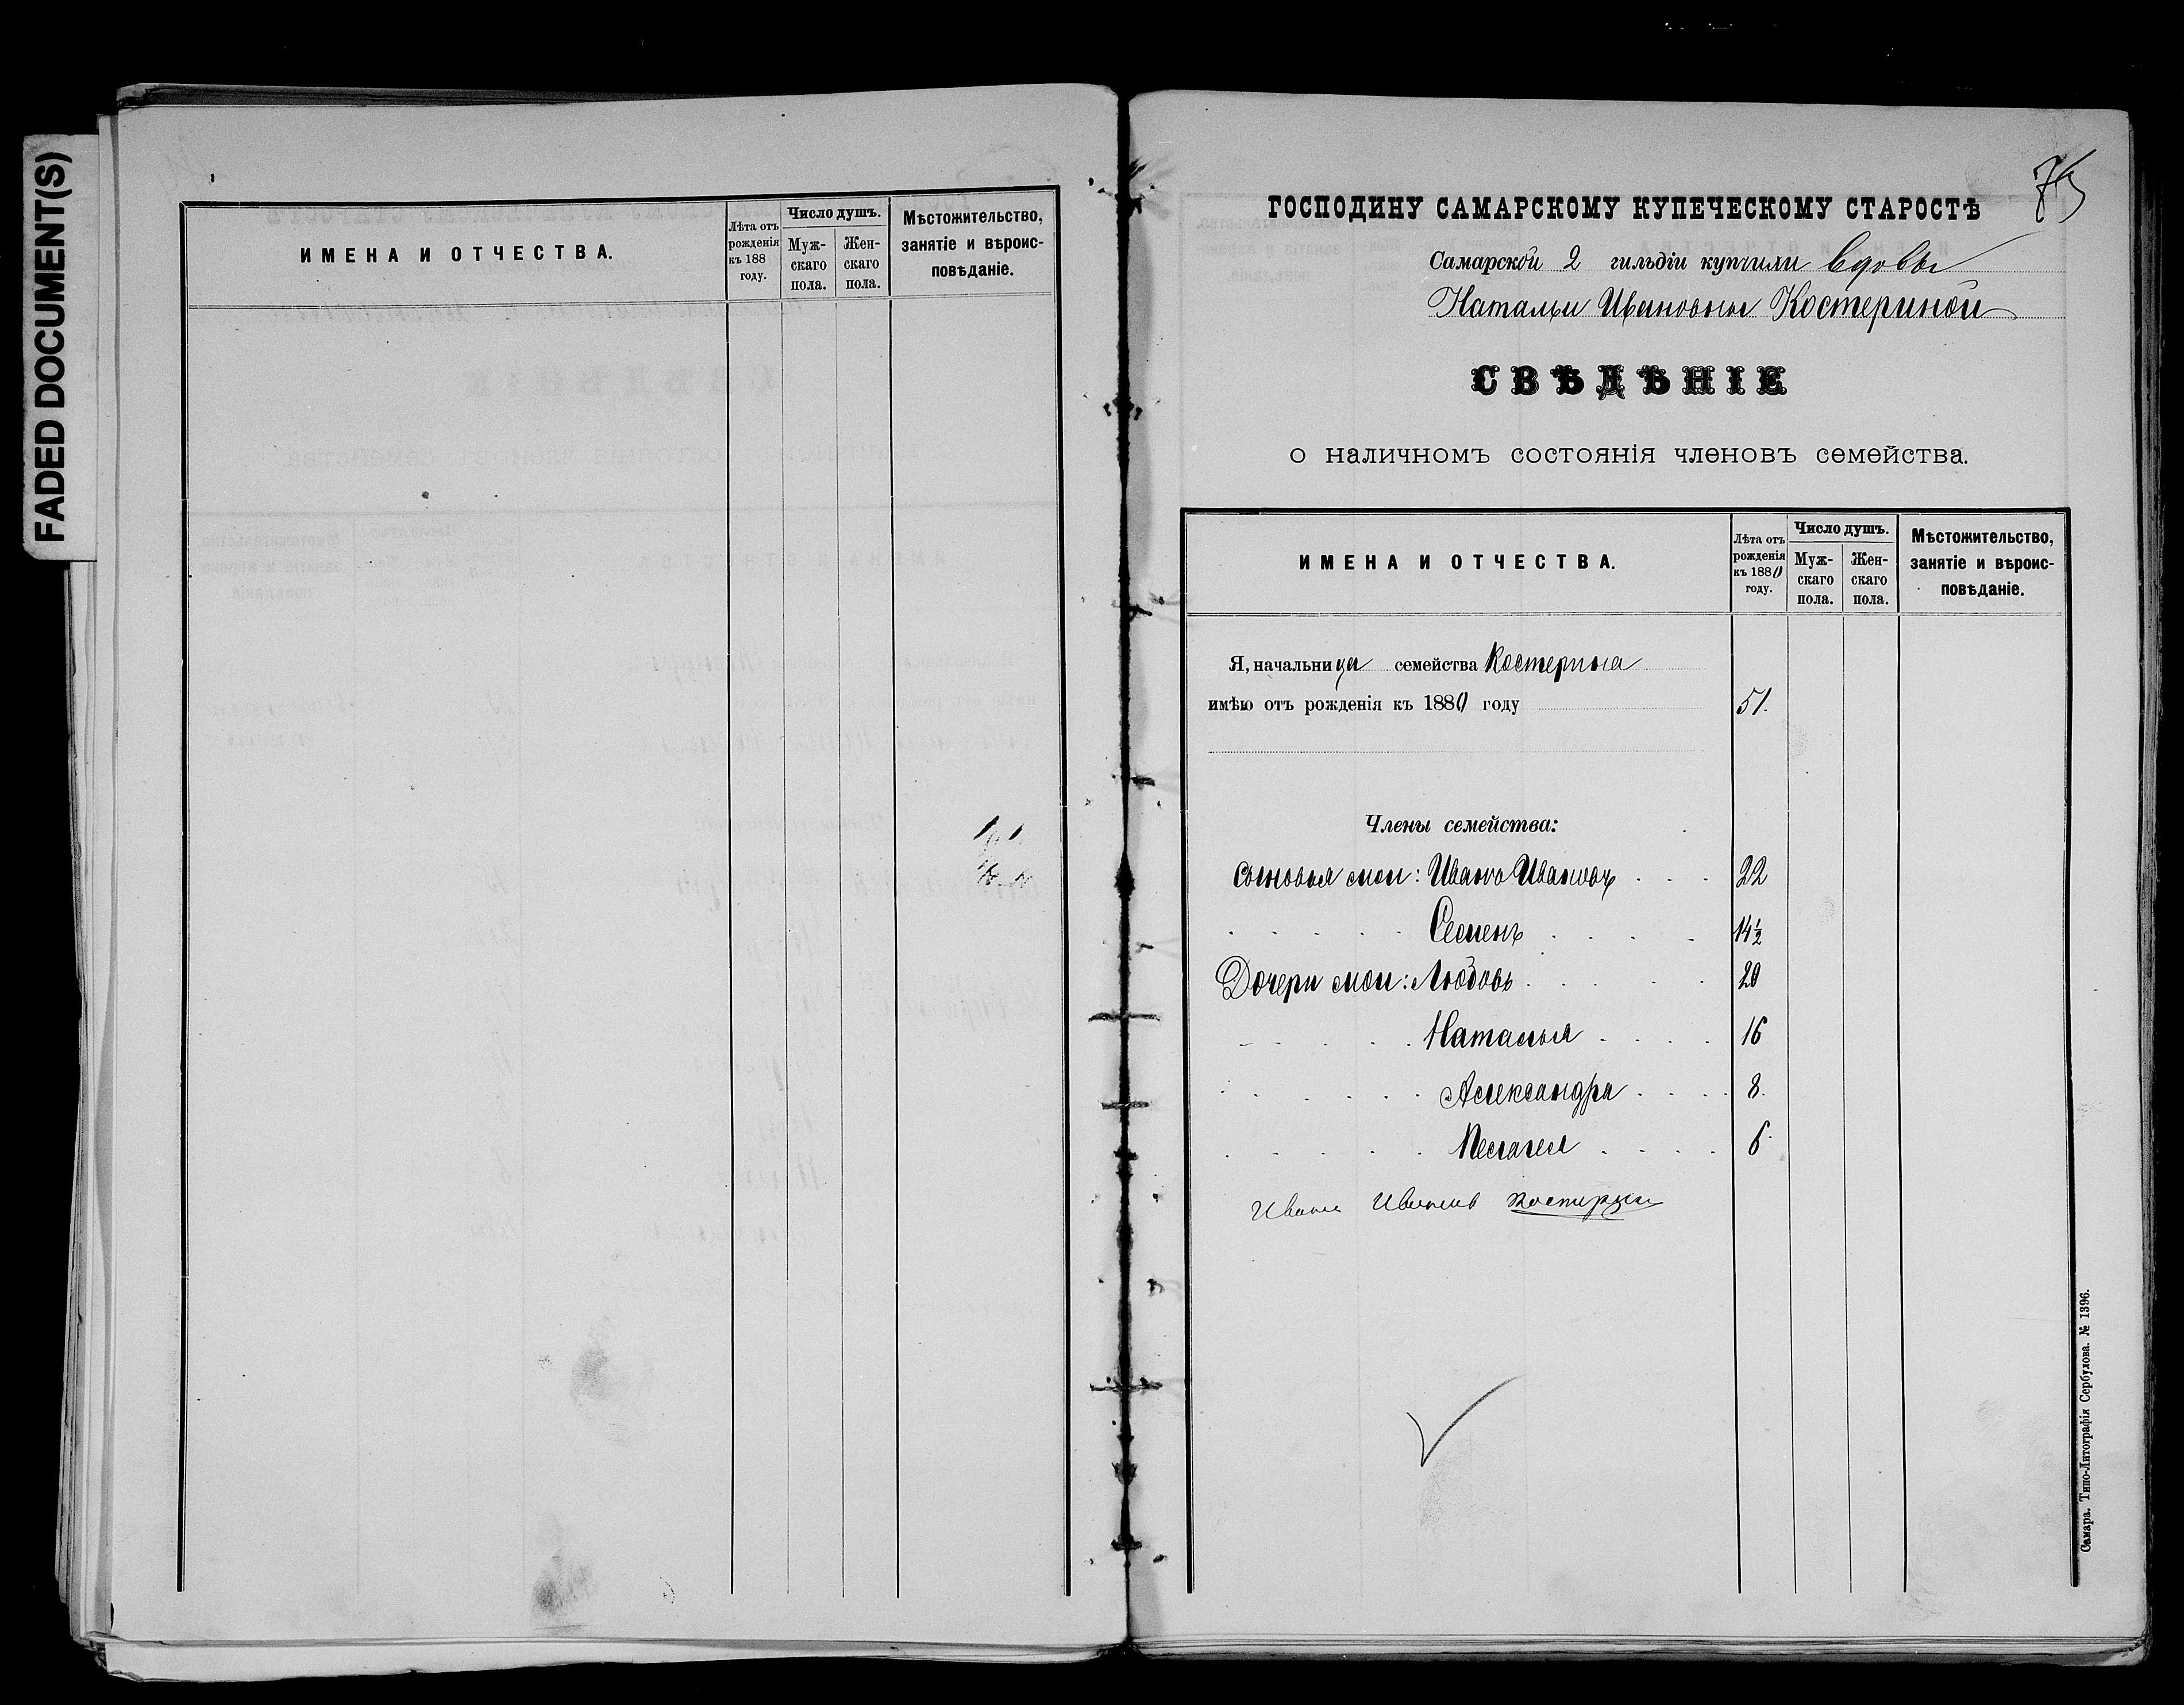 FADED DOCUMENT(S)
ИМЕНА И ОТЧЕСТВА.
Лѣта отъ рожденія къ 188 году.
Число душъ.
Мужскаго пола.
Женскаго пола.
Мѣстожительство, занятіе и вѣроисповѣданіе.
ГОСПОДИНУ САМАРСКОМУ КУПЕЧЕСКОМУ СТАРОСТѢ
Самарской 2 гильдіи купчихи вдовы
Натальи Ивановны Костериной
СВѢДѢНІЕ
о наличномъ состоянія членовъ семейства.
ИМЕНА И ОТЧЕСТВА.
Лѣта отъ рожденія къ 1880 году.
Число душъ.
Мужскаго пола.
Женскаго пола.
Мѣстожительство, занятіе и вѣроисповѣданіе.
Я, начальница семейства Костерина
имѣю отъ рожденія къ 1880 году 51.
Члены семейства:
Сыновья мои: Иванъ Ивановъ 22
Семенъ 14½
Дочери мои: Любовь 20
Наталья 16
Александра 8.
Пелагея 6
Иванъ Ивановъ Костеринъ
Самара. Типо-Литографія Сербулова. № 1396.